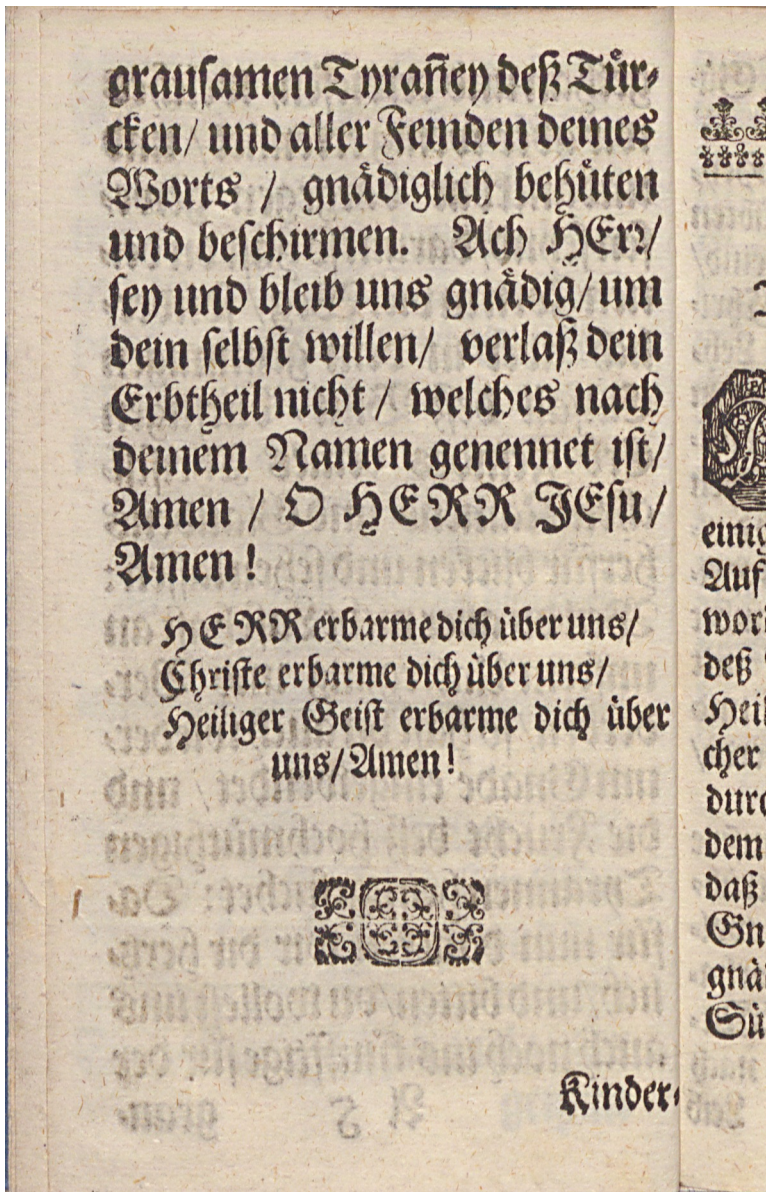 grausamen Tyrañey deß Tür⸗
cken/ und aller Feinden deines
Worts / gnädiglich behüten
und beschirmen. Ach HErꝛ/
sey und bleib uns gnädig/ um
dein selbst willen/ verlaß dein
Erbtheil nicht / welches nach
deinem Namen genennet ist/
Amen / O HERR JEsu/
Amen!
HERR erbarme dich über uns/
Christe erbarme dich über uns/
Heiliger Geist erbarme dich über
uns/ Amen!
Kinder⸗
einig
Auf
wor
deß
Heil
cher
durc
dem
daß
Gn
gnä
Sü